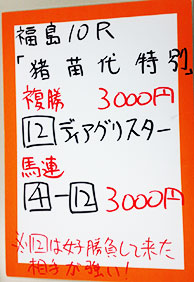 福島10R
「猪苗代特別」
複勝 3000円
12 ディアグリスター
馬連
4-12 3000円
※12は好勝負して来た
相手が強い!